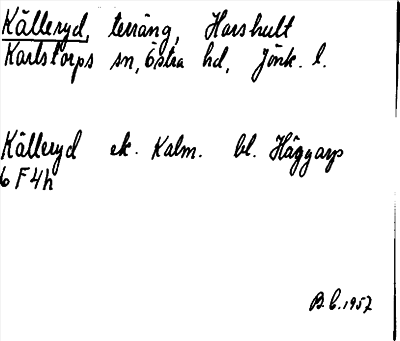 Källeryd, terräng, Harshult
Karlstorps sn, Östra hd, Jönk. l.
Källeryd ek. Kalm. bl. Häggarp
6 F4h
B.C. 1957